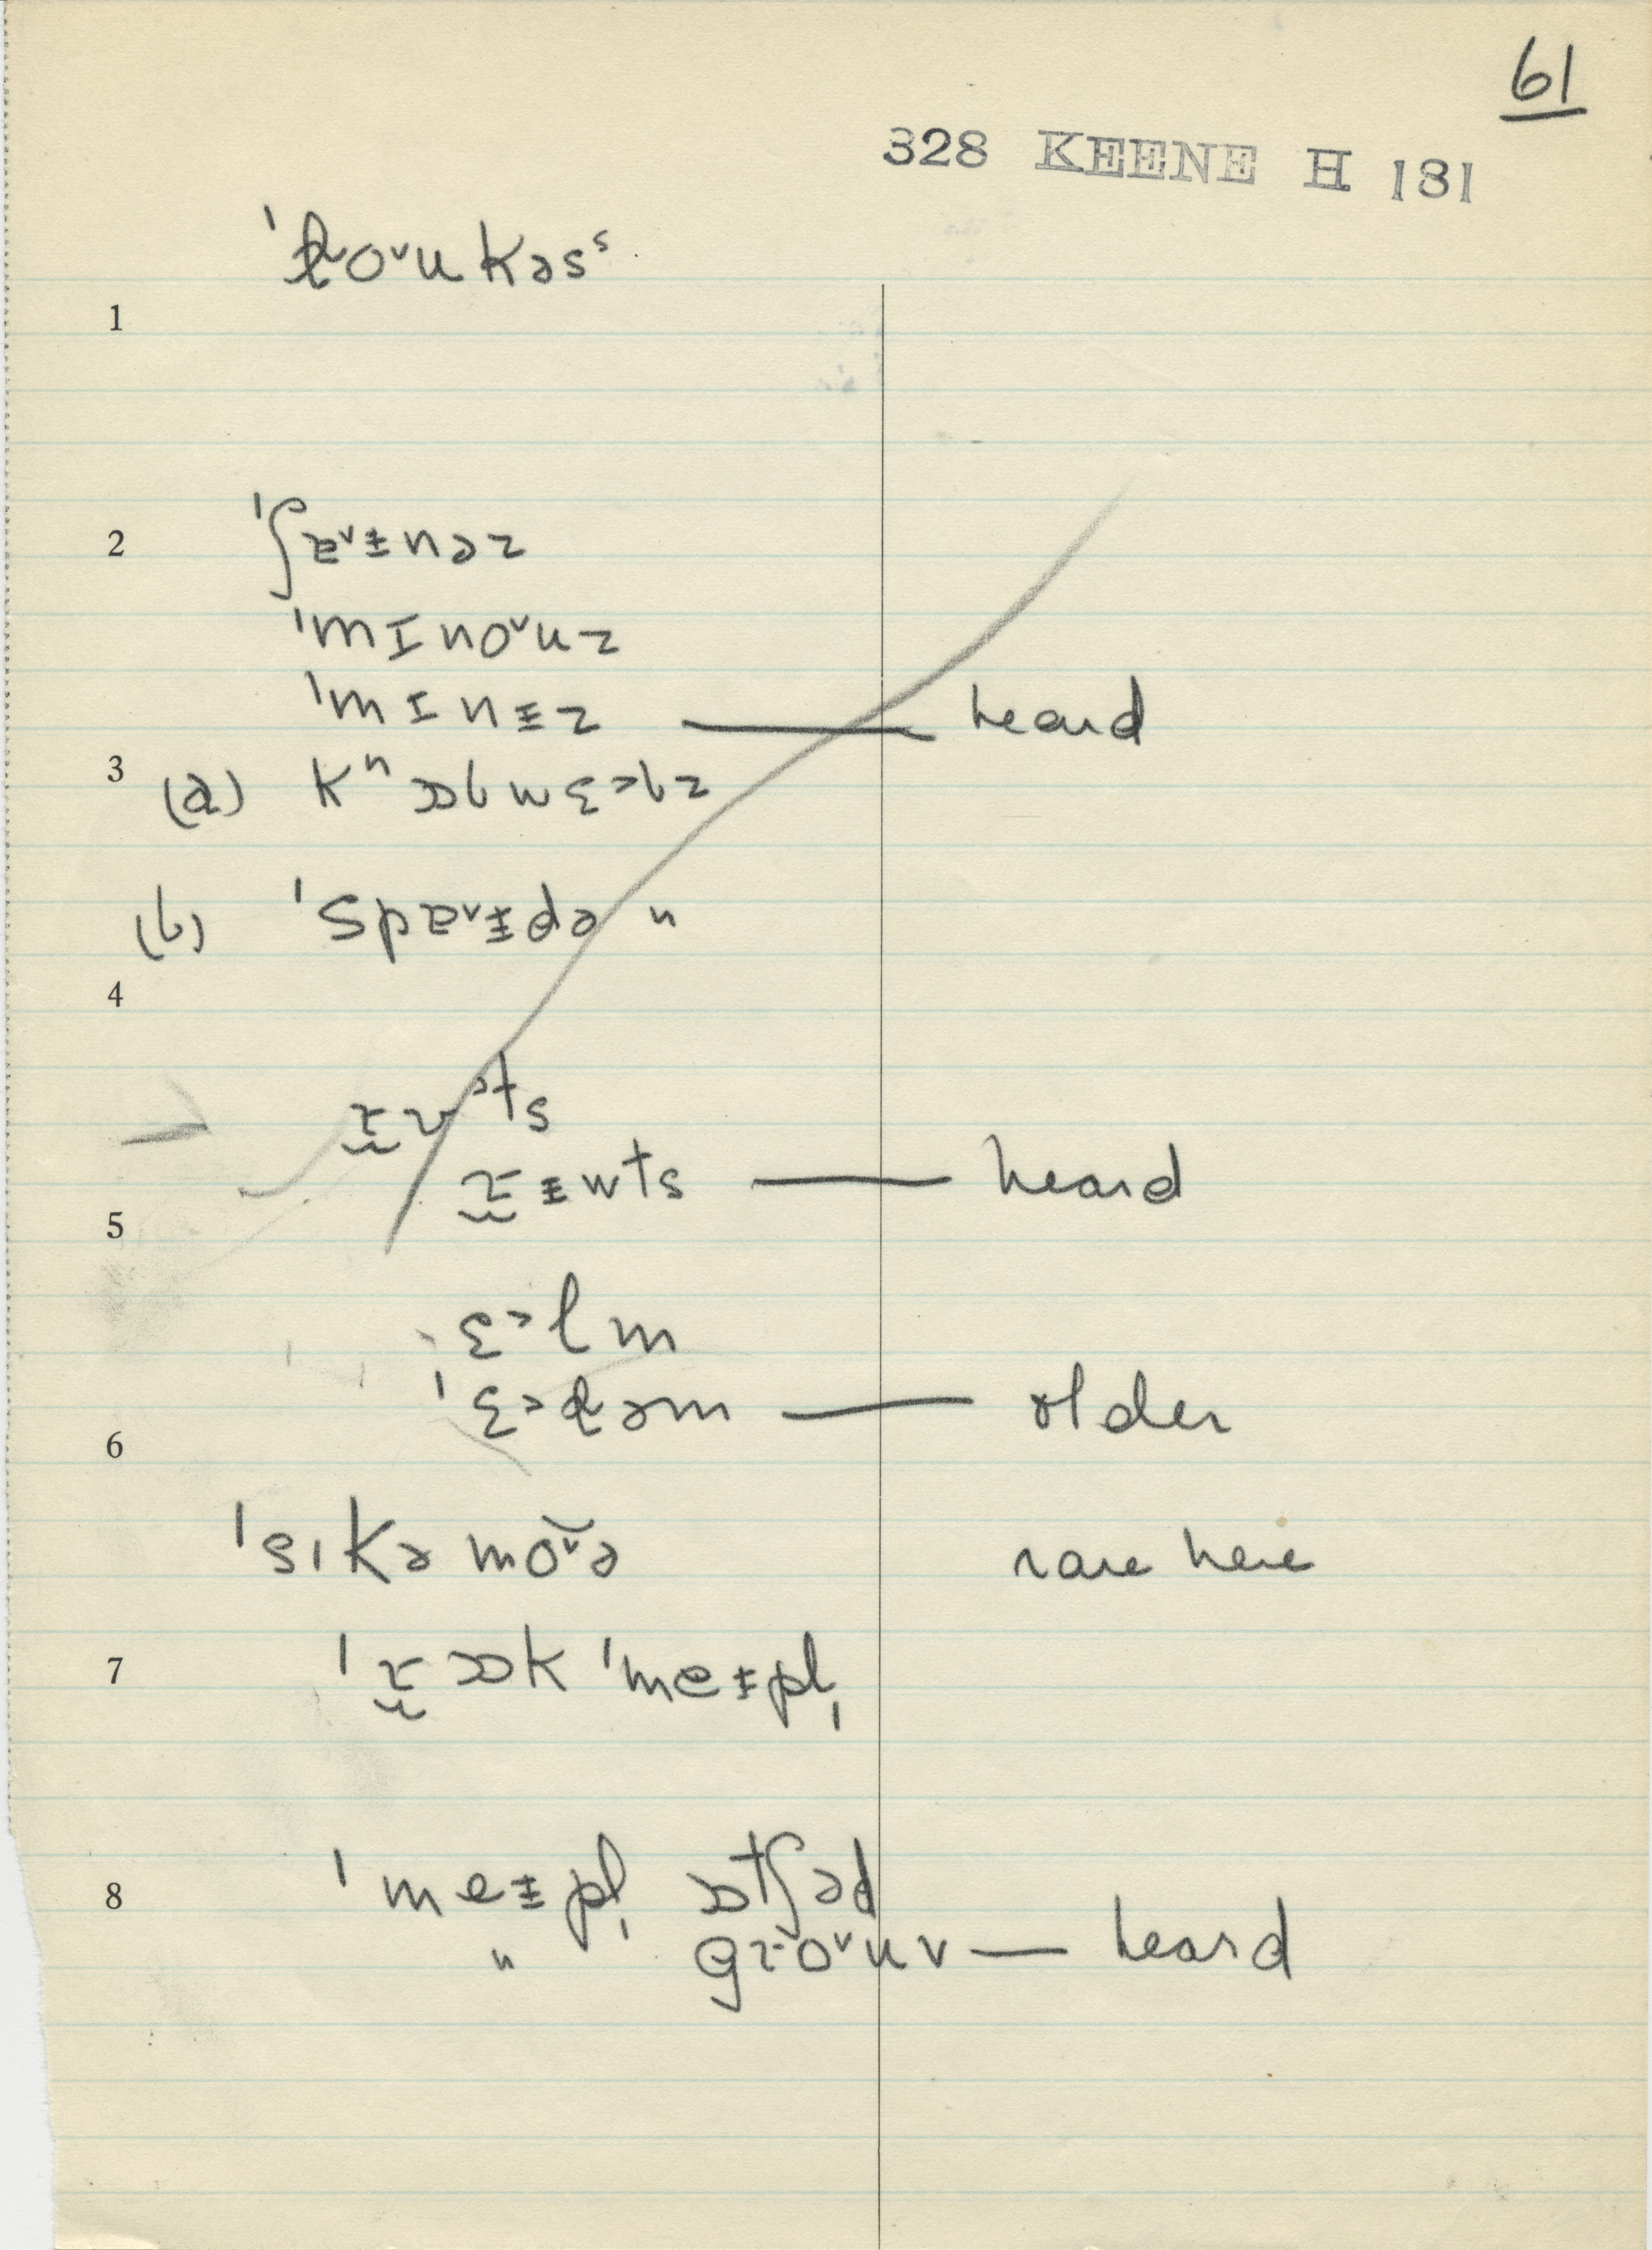 61
328 KEENE H 181
ˈɫoᵛukəsˢ
1
2 ˈʃɐᵛɨnəz
ˈmɪnoᵛuz
ˈmɪnɨz — heard
3 (a) kⁿɒbwɛ˃bz
(b) ˈspɐᵛɨdə "
4
ts
wts — heard
5
ɛ˃lm
ˈɛ˃ɫəm — older
6
ˈsɪkəmoᵛə rare here
7 ɒk ˈmeɨpl̩
8 ˈmeɨpl̩ ɒtʃəd
" groᵛuv — heard